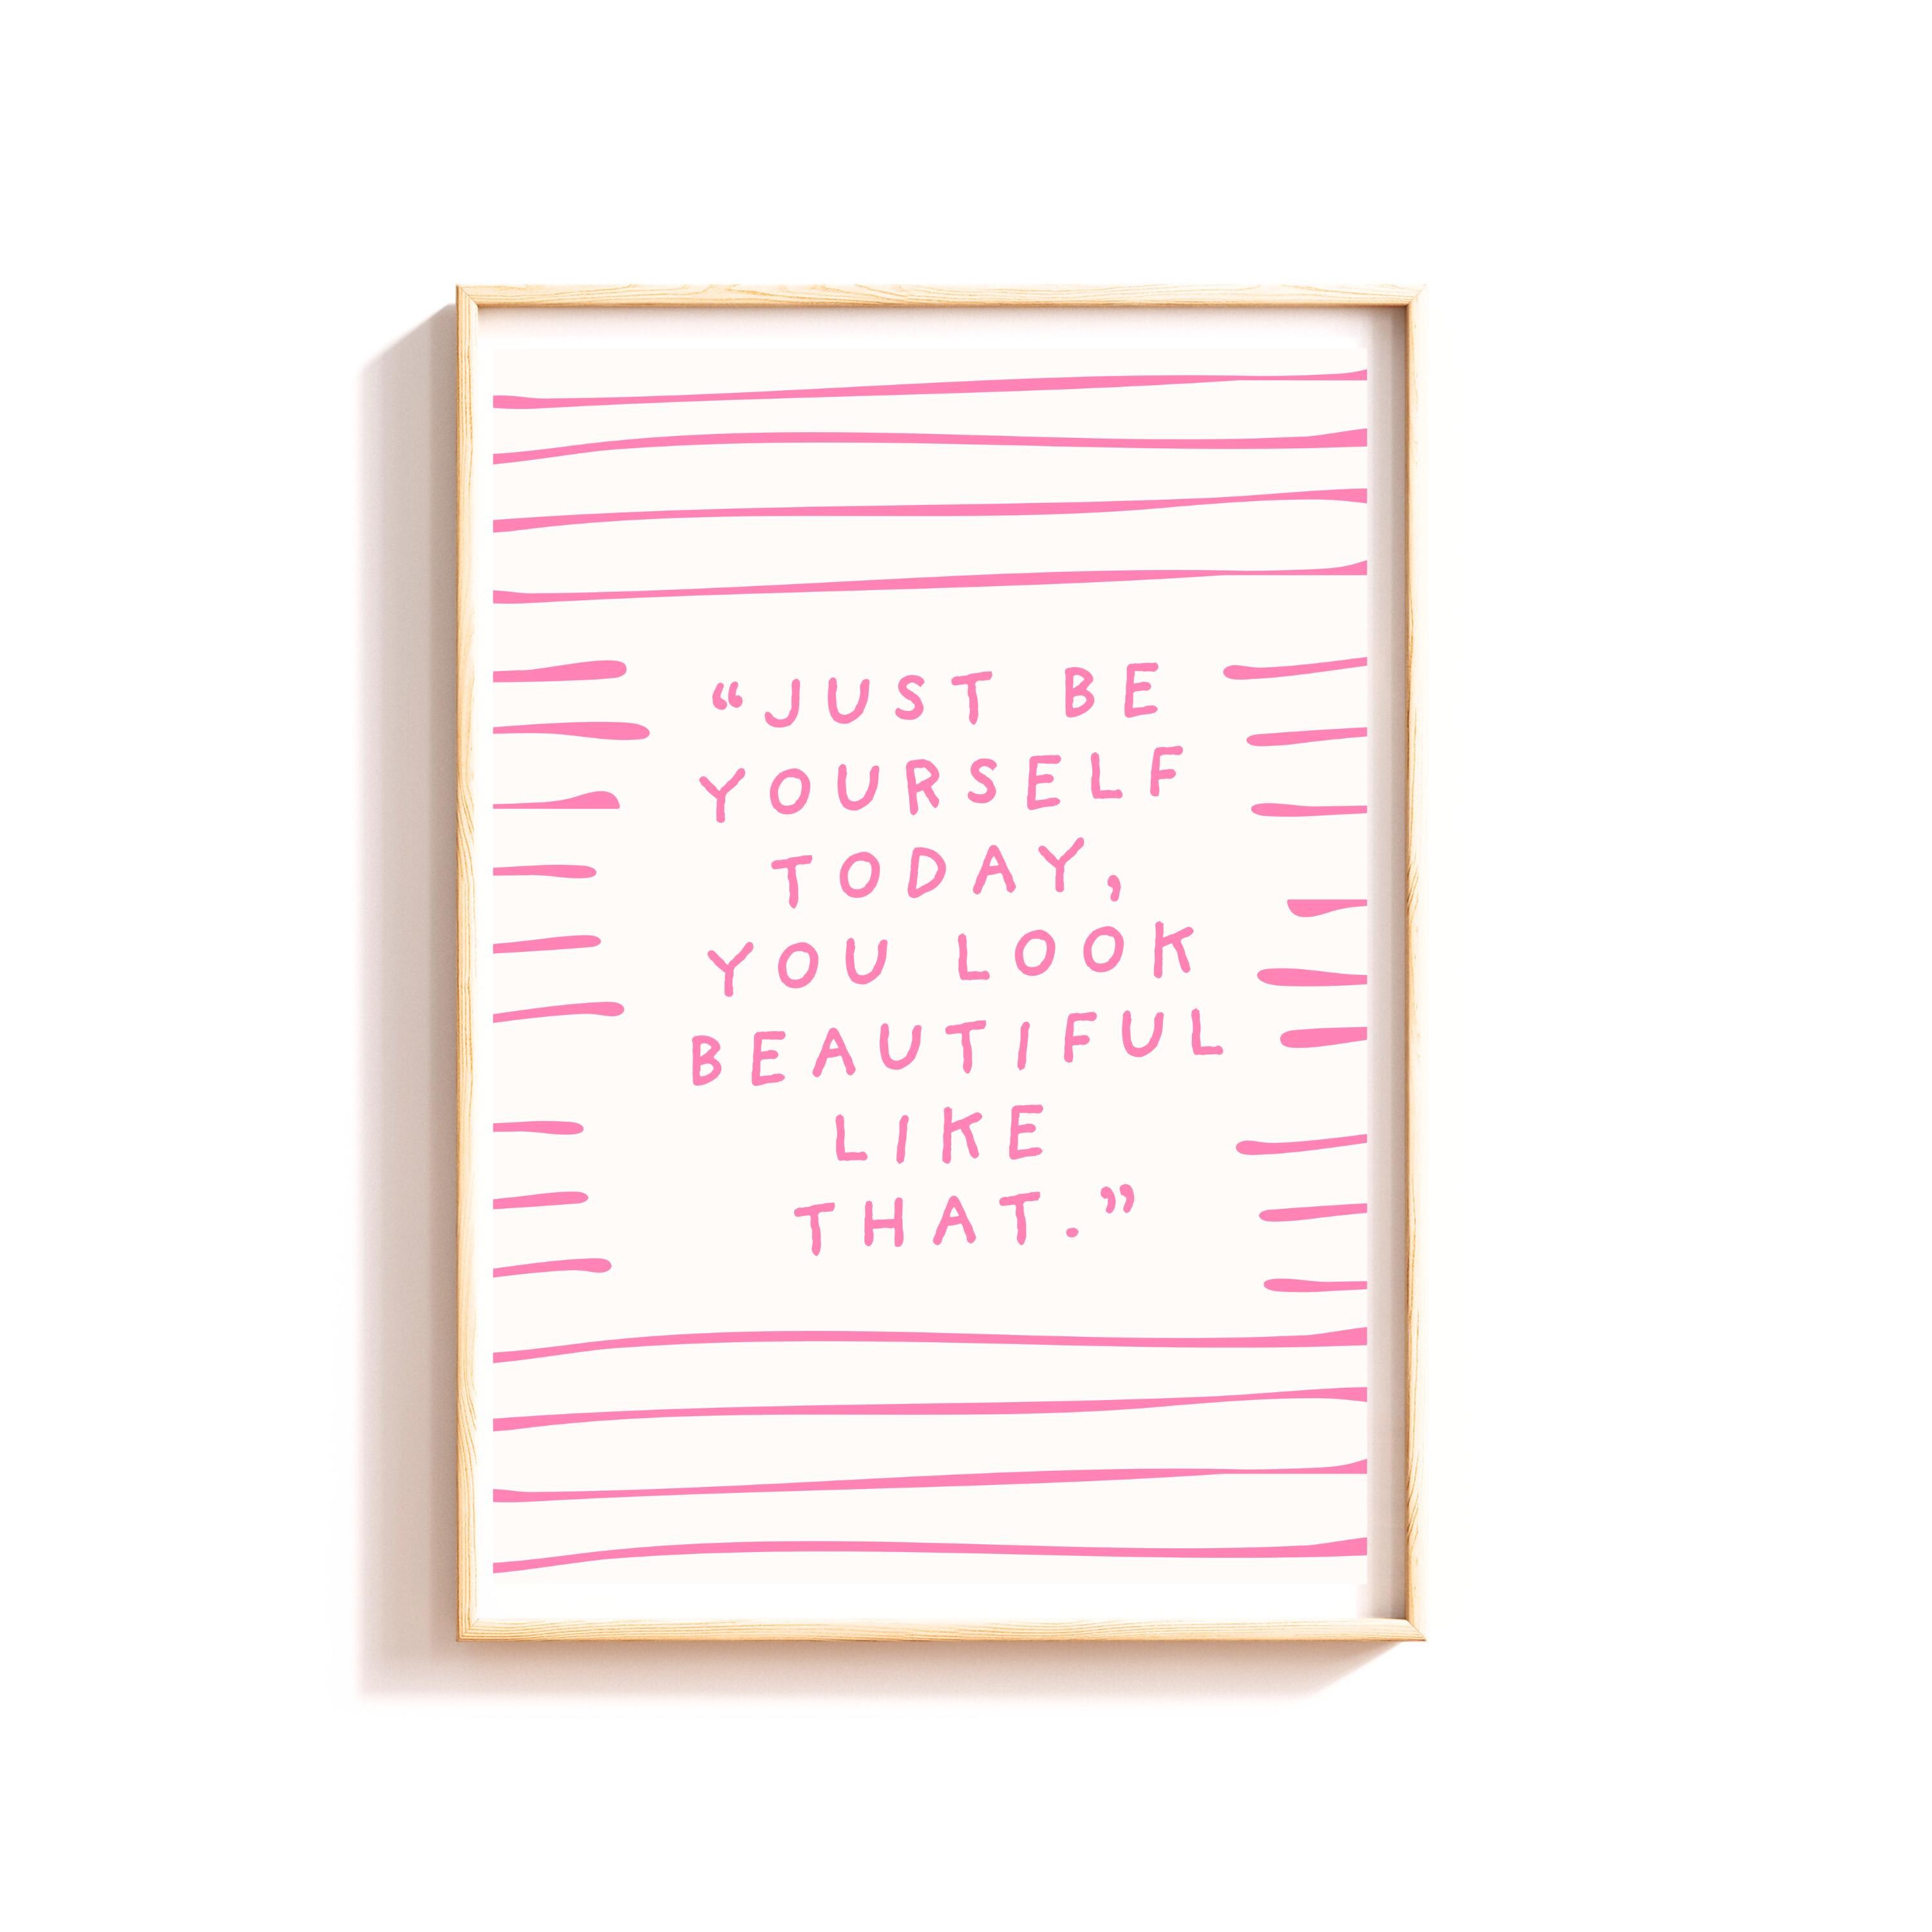 “JUST BE
YOURSELF
TODAY,
YOU LOOK
BEAUTIFUL
LIKE
THAT.”